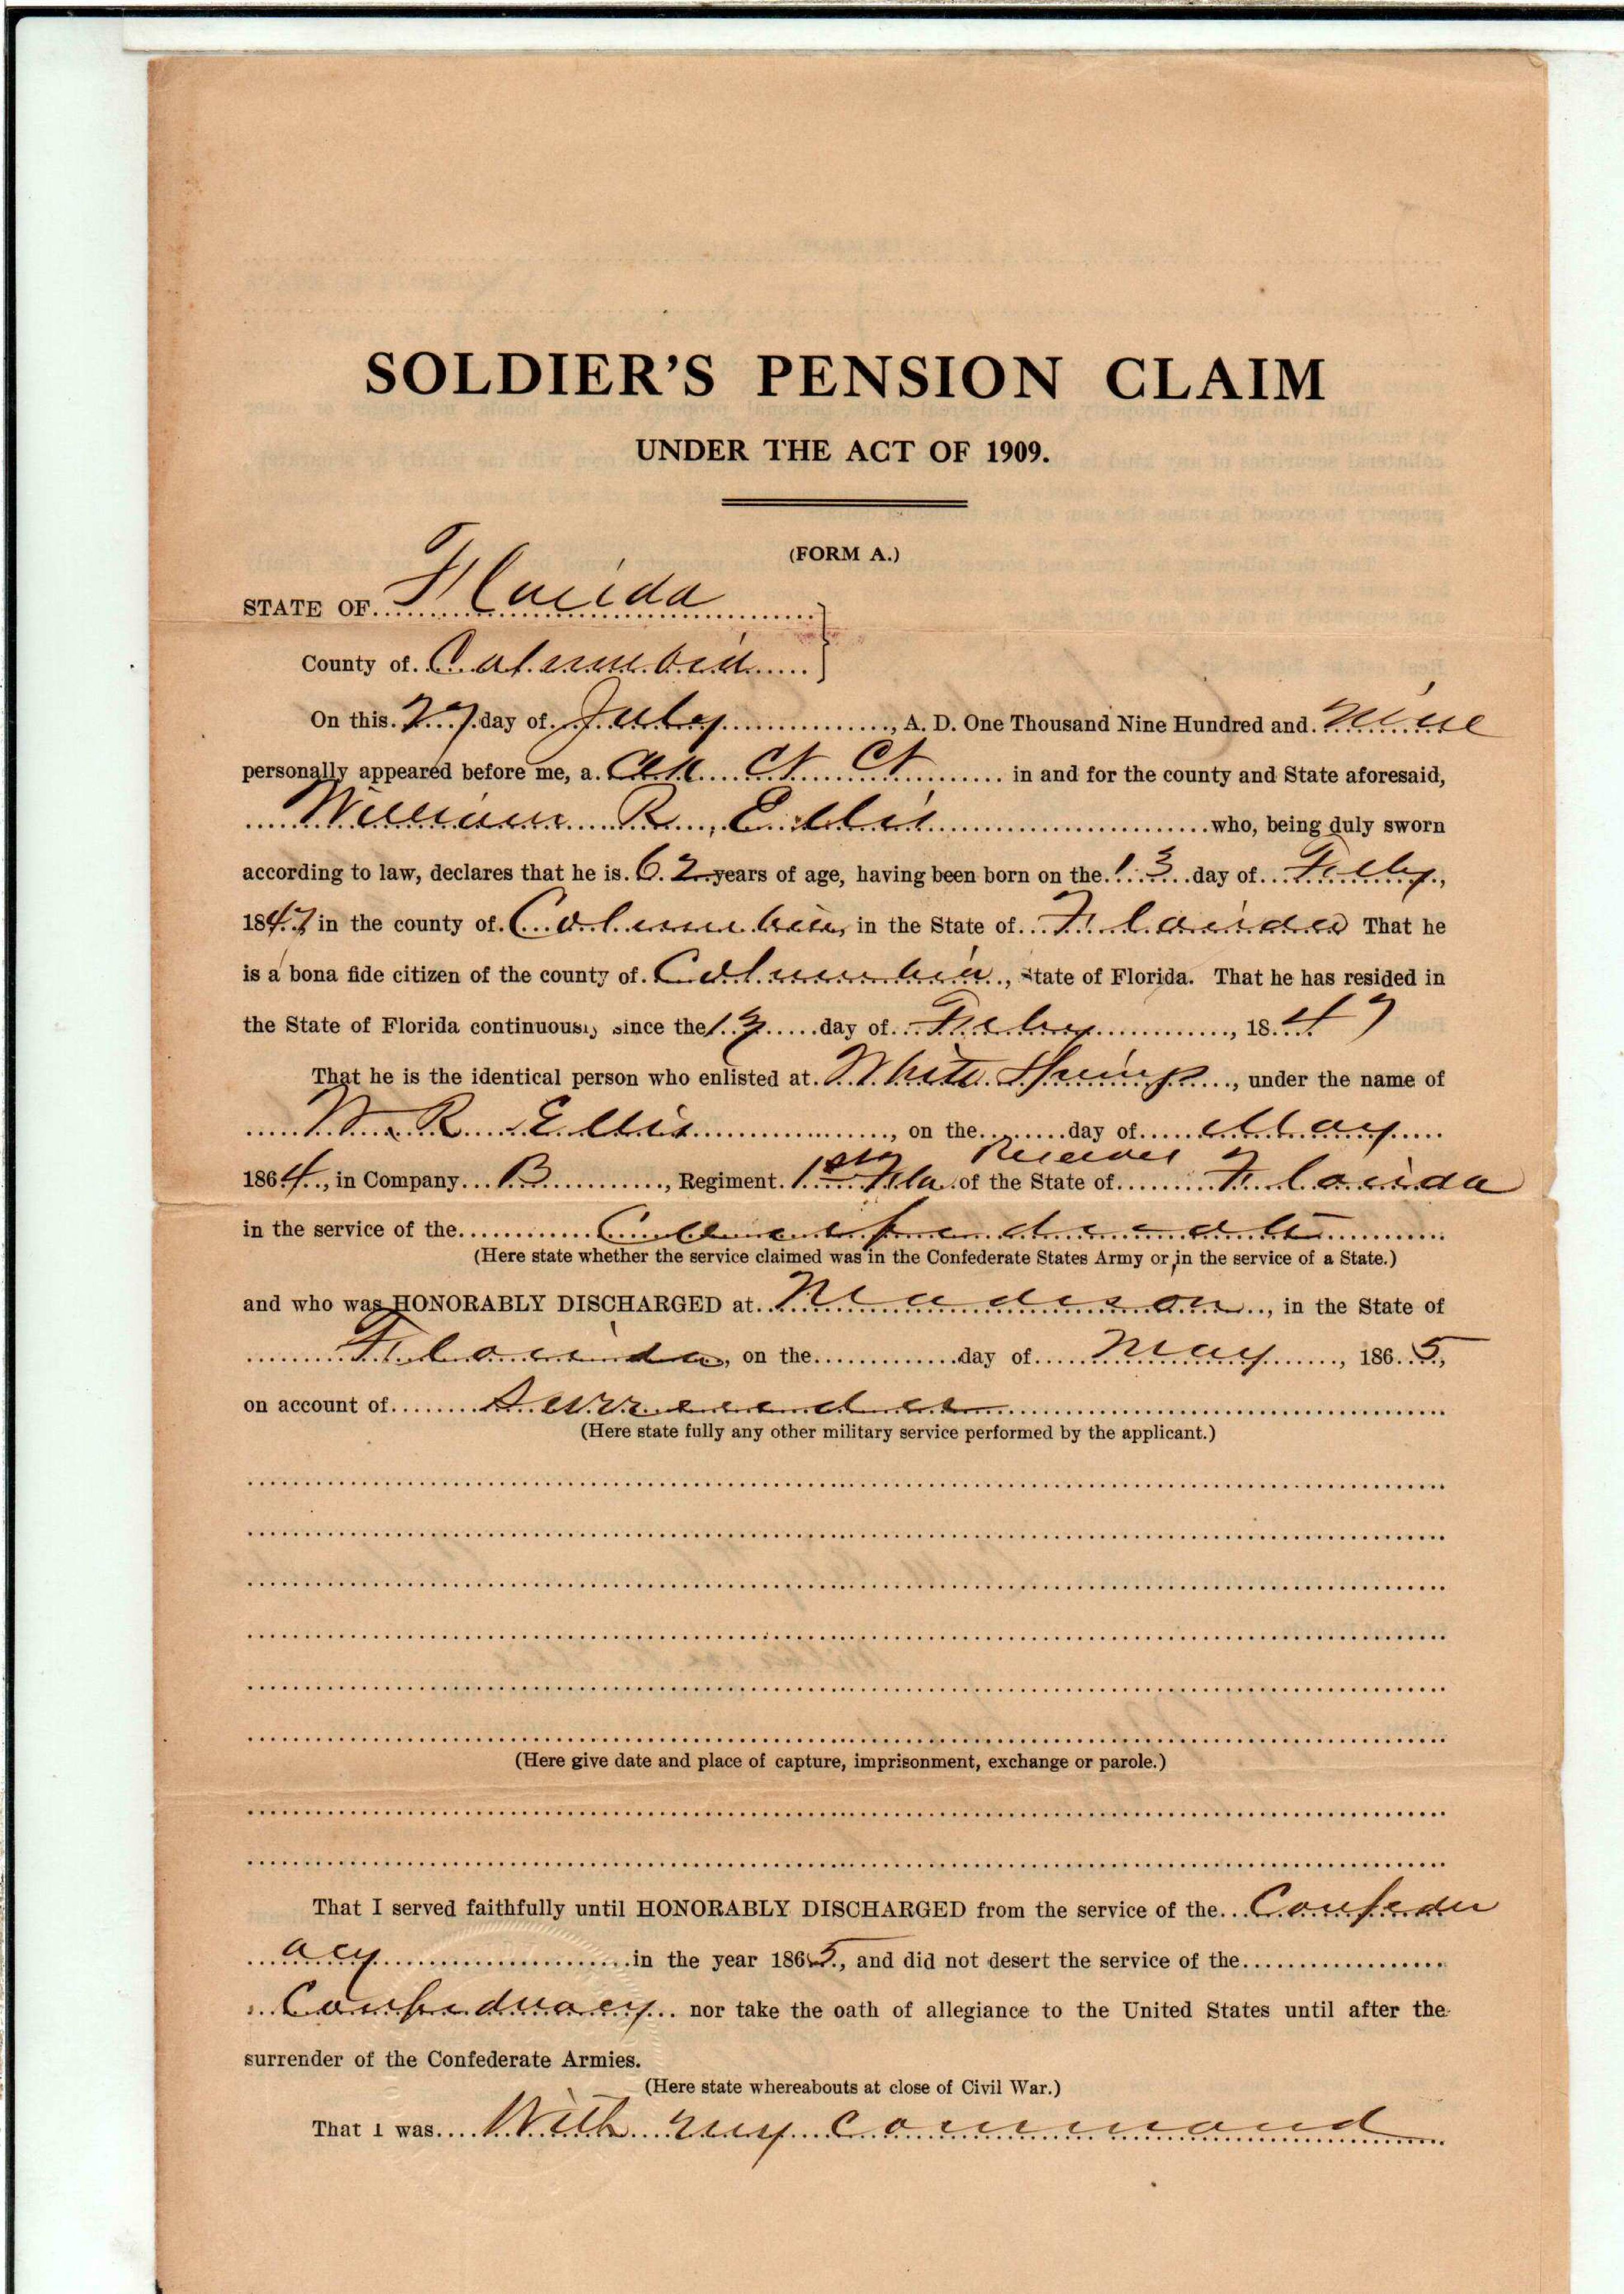 SOLDIER'S PENSION CLAIM
UNDER THE ACT OF 1909.
(FORM A.)
STATE OF Florida
County of Columbia
On this 27 day of July, A. D. One Thousand Nine Hundred and Nine
personally appeared before me, a Clk Ct Ct in and for the county and State aforesaid,
William R. Ellis who, being duly sworn
according to law, declares that he is 62 years of age, having been born on the 13 day of Feby,
1847 in the county of Columbia, in the State of Florida That he
is a bona fide citizen of the county of Columbia, State of Florida. That he has resided in
the State of Florida continuously since the 13 day of Feby, 1847
That he is the identical person who enlisted at White Springs, under the name of
W. R. Ellis, on the day of May
1864, in Company B, Regiment 1st Fla Reserves of the State of Florida
in the service of the Confederate
(Here state whether the service claimed was in the Confederate States Army or in the service of a State.)
and who was HONORABLY DISCHARGED at Madison, in the State of
Florida, on the day of May, 1865,
on account of Surrender
(Here state fully any other military service performed by the applicant.)
(Here give date and place of capture, imprisonment, exchange or parole.)
That I served faithfully until HONORABLY DISCHARGED from the service of the Confeder
acy in the year 1865, and did not desert the service of the
Confederacy nor take the oath of allegiance to the United States until after the
surrender of the Confederate Armies.
(Here state whereabouts at close of Civil War.)
That I was With my command